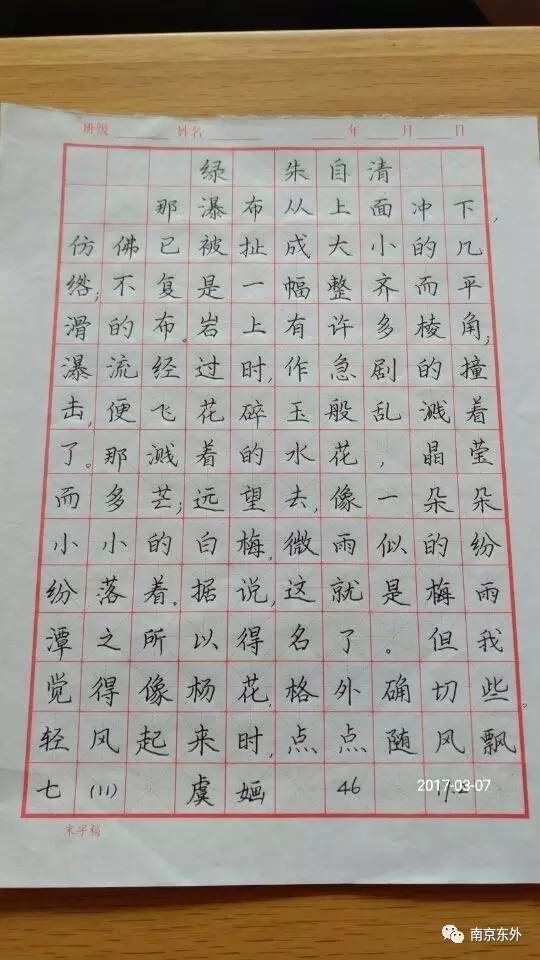 班级 姓名 年 月 日
绿 朱自清
那瀑布从上面冲下，
仿佛已被扯成大小的几
绺；不复是一幅整齐而平
滑的布。岩上有许多棱角；
瀑流经过时，作急剧的撞
击，便飞花碎玉般乱溅着
了。那溅着的水花，晶莹
而多芒；远望去，像一朵朵
小小的白梅，微雨似的纷
纷落着。据说，这就是梅雨
潭之所以得名了。但我
觉得像杨花，格外确切些。
轻风起来时，点点随风飘
七 (11) 虞婳 46
2017-03-07
末字稿
南京东外